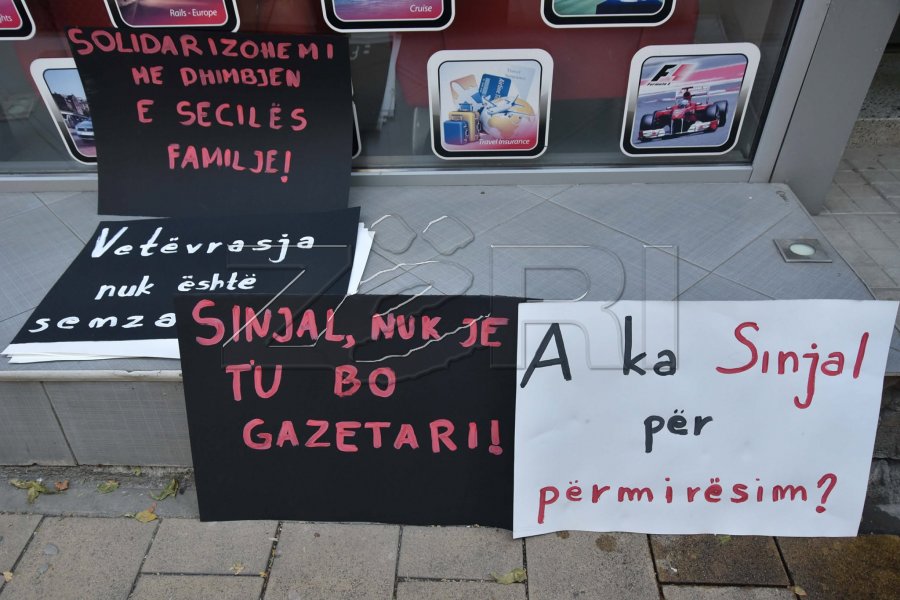 ghts
Rails - Europe
Cruise
SOLIDARIZOHEMI
ME DHIMBJEN
E SECILËS
FAMILJE!
Travel Insurance
F1
Formula 1
Vetëvrasja
nuk është
semza
SINJAL, NUK JE
TU BO
GAZETARI!
A ka Sinjal
për
përmirësim?
ZËRI